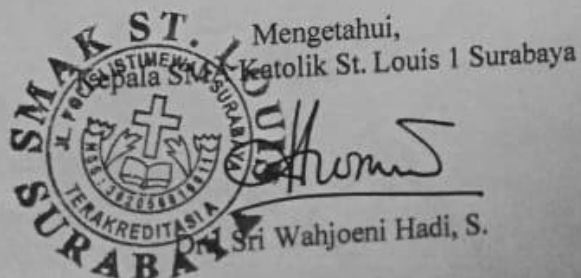 Mengetahui,
Kepala SMA Katolik St. Louis 1 Surabaya
SMAK ST. LOUIS
SURABAYA
JL. POLISI ISTIMEWA SURABAYA
TERAKREDITASI A
Sri Wahjoeni Hadi, S.